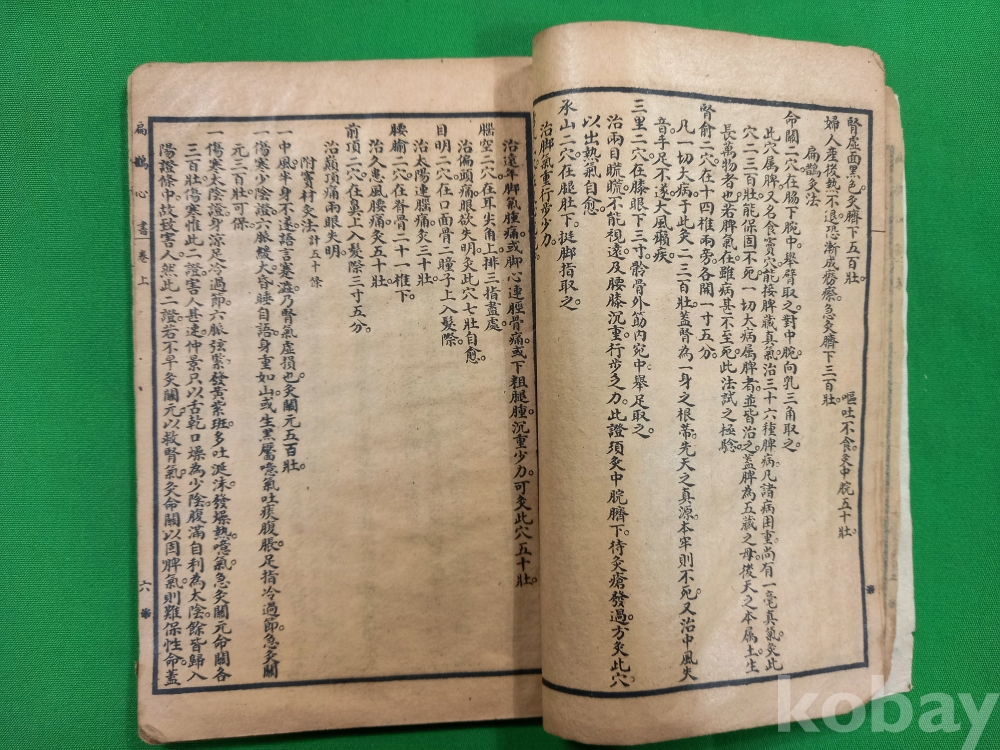 腎虛面黑色灸臍下五百壯。
嘔吐不食灸中脘五十壯
婦人産後熱不退恐漸成癆瘵急灸臍下三百壯。
扁鵲灸法
命關二穴在脇下腕中舉臂取之對中腕向乳三角取之
此穴屬脾又名食竇穴能接脾藏真氣治三十六種脾病凡諸病困重尚有一毫真氣灸此
穴二三百壯能保固不死一切大病屬脾者並皆治之蓋脾為五藏之母後天之本屬土生
長萬物者也若脾氣在雖病甚不至死此法試之極驗。
腎俞二穴在十四椎兩旁各開一寸五分。
凡一切大病于此灸二三百壯蓋腎為一身之根蒂先天之真源本牢則不死又治中風失
音手足不遂大風癩疾
三里二穴在膝眼下三寸䯒骨外筋內宛中舉足取之。
治兩目𥆨𥆨不能視遠及腰膝沉重行步乏力此證須灸中脘臍下待灸瘡發過方灸此穴
以出熱氣自愈
承山二穴在腿肚下挺脚指取之
治脚氣重行步少力。
治遠年脚氣腫痛或脚心連脛骨痛或下粗腿腫沉重少力可灸此穴五十壯。
腦空二穴在耳尖角上排三指盡處
治偏頭痛眼欲失明灸此穴七壯自愈。
目明二穴在口面骨二瞳子上入髮際。
治太陽連腦痛灸三十壯
腰腧二穴在脊骨二十一椎下
治久患風腰痛灸五十壯
前頂二穴在鼻上入髮際三寸五分。
治巔頂痛兩眼失明。
附竇材灸法計五十條
一中風半身不遂語言蹇澁乃腎氣虛損也灸關元五百壯。
一傷寒少陰證六脈緩大昏睡自語身重如山或生黑靨噫氣吐痰腹脹足指冷過節急灸關
元三百壯可保
一傷寒太陰證身涼足冷過節六脈弦緊發黃紫班多吐涎沫發燥熱噫氣急灸關元命關各
三百壯傷寒惟此二證害人甚速仲景只以舌乾口燥為少陰腹滿自利為太陰餘皆歸入
陽證條中故致害人然此二證若不早灸關元以救腎氣灸命關以固脾氣則難保性命蓋
扁鵲心書 卷上
六
kobay